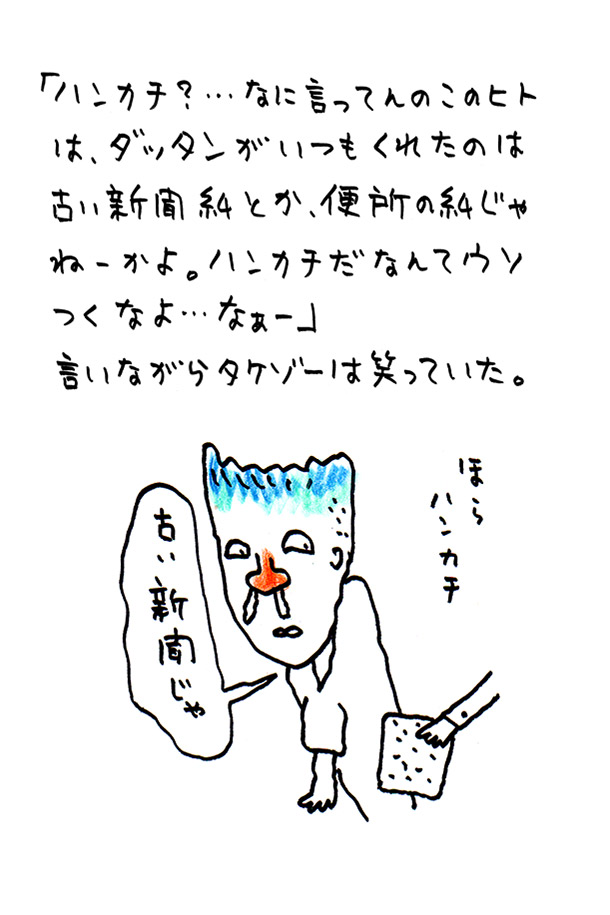 「ハンカチ?…なに言ってんのこのヒト
は、ダッタンがいつもくれたのは
古い新聞紙とか、便所の紙じゃ
ねーかよ。ハンカチだなんてウソ
つくなよ…なぁー」
言いながらタケゾーは笑っていた。
ほら
ハンカチ
古い新聞じゃ